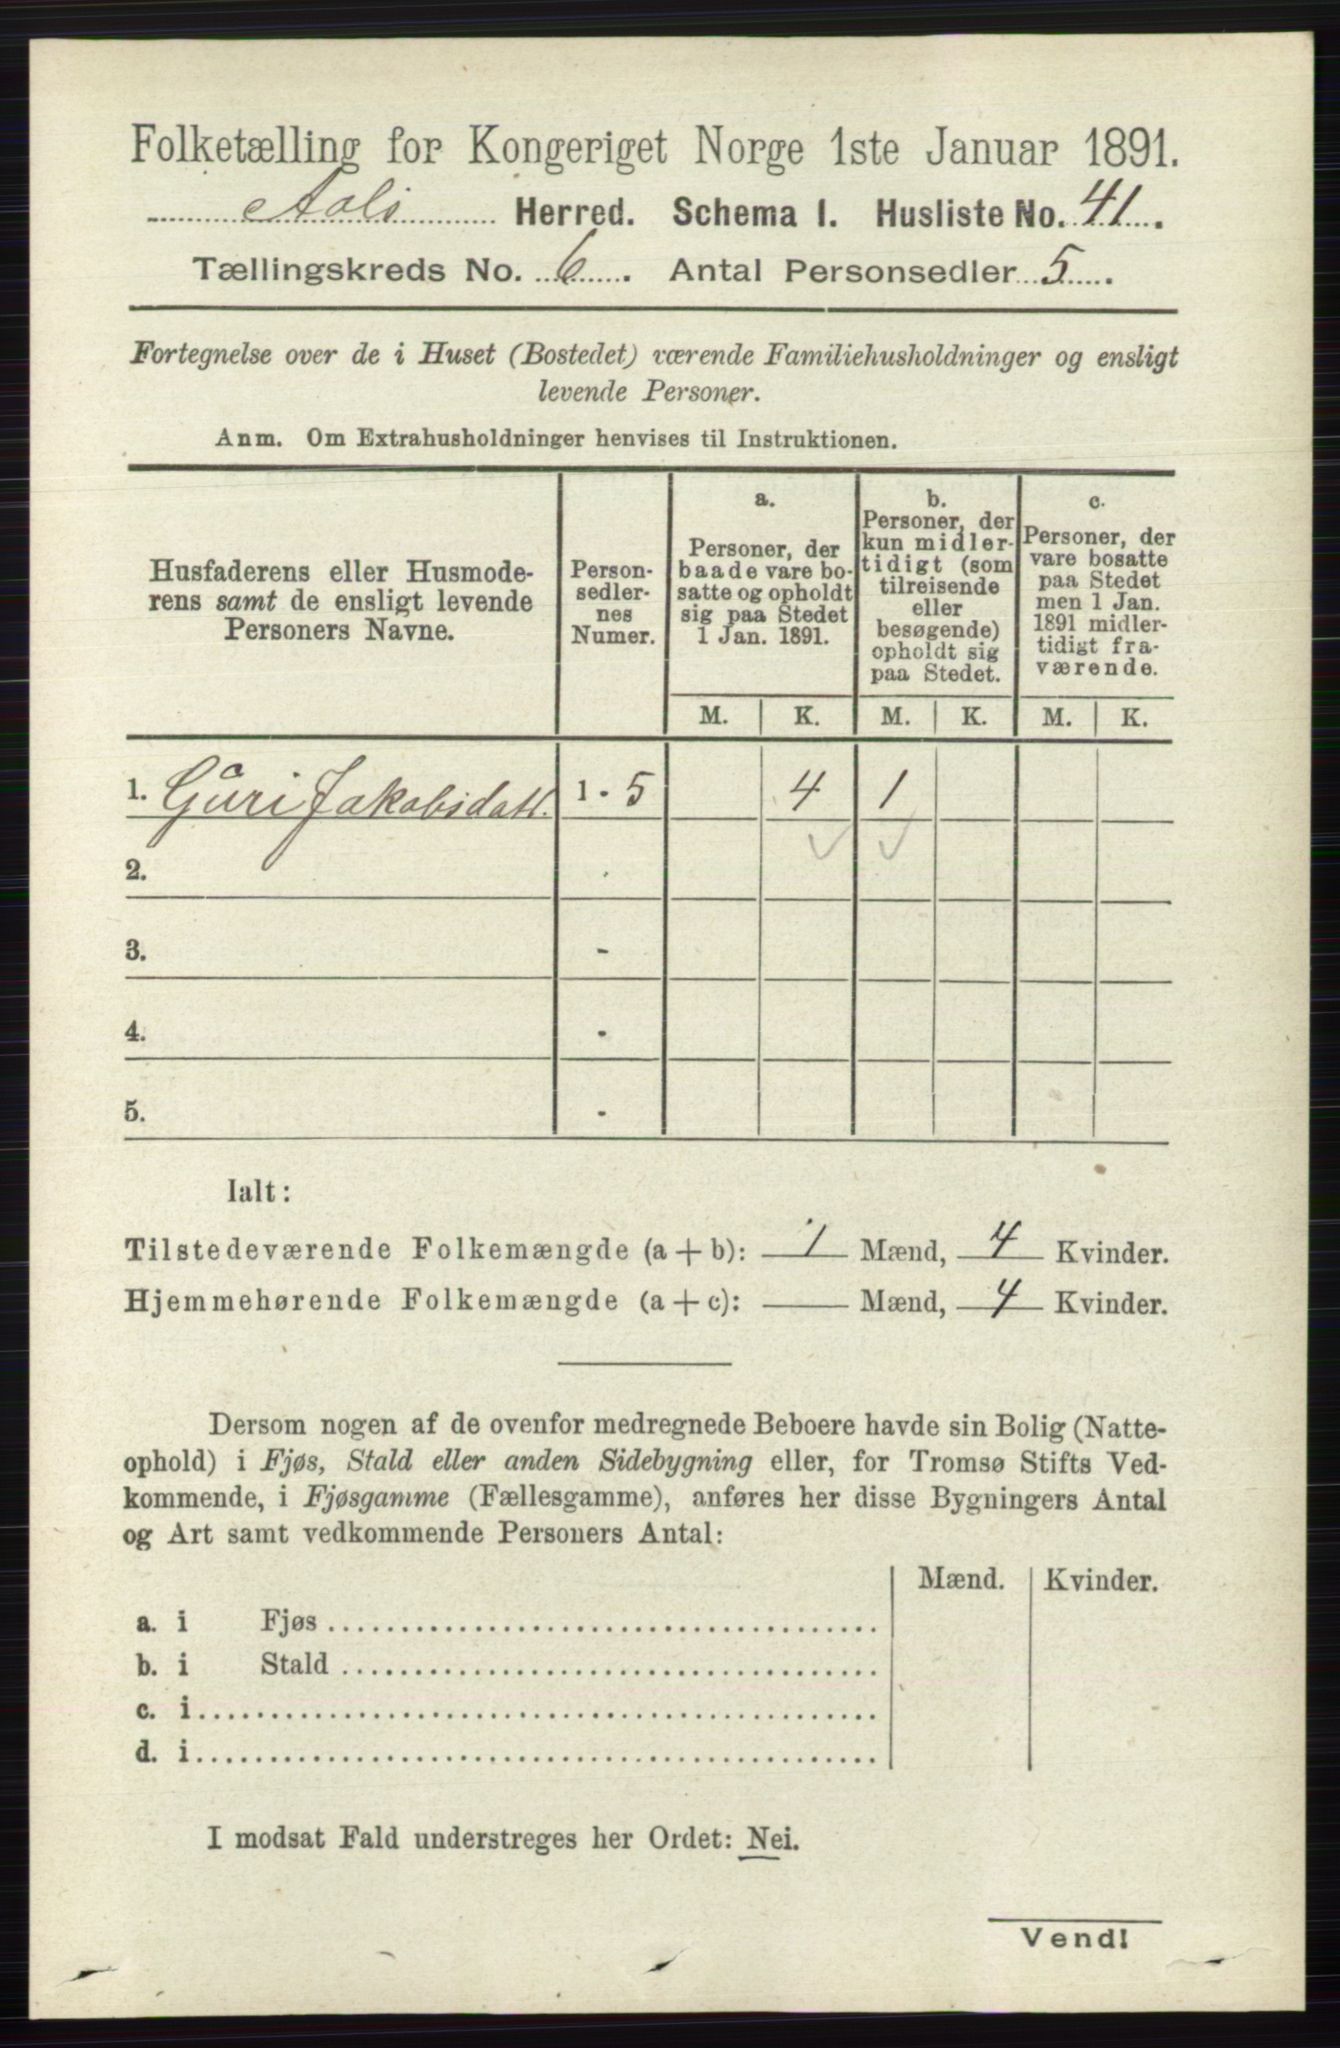 Folketælling for Kongeriget Norge 1ste Januar 1891.
Aals Herred. Schema I. Husliste No. 41.
Tællingskreds No. 6. Antal Personsedler 5.
Fortegnelse over de i Huset (Bostedet) værende Familiehusholdninger og ensligt
levende Personer.
Anm. Om Extrahusholdninger henvises til Instruktionen.
Husfaderens eller Husmode-
rens samt de ensligt levende
Personers Navne.
Person-
sedler-
nes
Numer.
a.
Personer, der
baade vare bo-
satte og opholdt
sig paa Stedet
1 Jan. 1891.
b.
Personer, der
kun midler-
tidigt (som
tilreisende
eller
besøgende)
opholdt sig
paa Stedet.
c.
Personer, der
vare bosatte
paa Stedet
men 1 Jan.
1891 midler-
tidigt fra-
værende.
M. K. M. K. M. K.
1. Guri Jakobsdatt. 1 - 5 4 1
2. -
3. -
4. -
5. -
Ialt:
Tilstedeværende Folkemængde (a + b): 1 Mænd, 4 Kvinder.
Hjemmehørende Folkemængde (a + c): — Mænd, 4 Kvinder.
Dersom nogen af de ovenfor medregnede Beboere havde sin Bolig (Natte-
ophold) i Fjøs, Stald eller anden Sidebygning eller, for Tromsø Stifts Ved-
kommende, i Fjøsgamme (Fællesgamme), anføres her disse Bygningers Antal
og Art samt vedkommende Personers Antal:
Mænd. Kvinder.
a. i Fjøs
b. i Stald
c. i
d. i
I modsat Fald understreges her Ordet: Nei.
Vend!